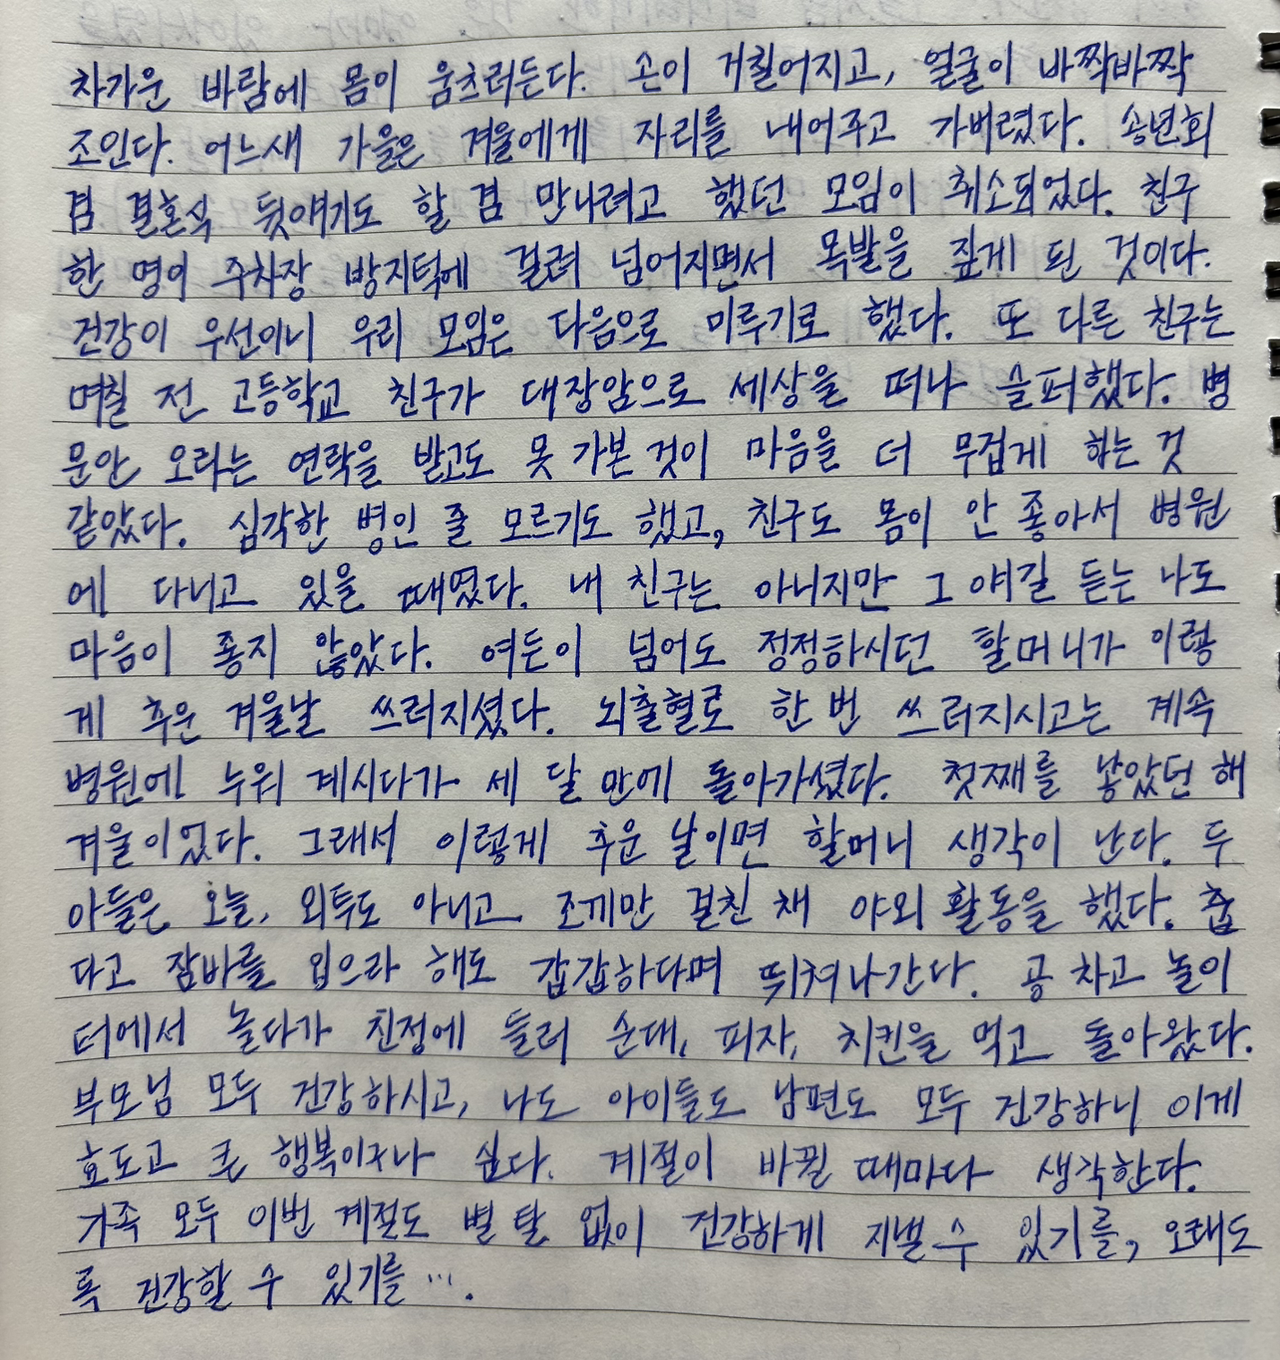 차가운 바람에 몸이 움츠러든다. 손이 거칠어지고, 얼굴이 바짝바짝
조인다. 어느새 가을은 겨울에게 자리를 내어주고 가버렸다. 송년회
겸 결혼식 뒷얘기도 할 겸 만나려고 했던 모임이 취소되었다. 친구
한 명이 주차장 방지턱에 걸려 넘어지면서 목발을 짚게 된 것이다.
건강이 우선이니 우리 모임은 다음으로 미루기로 했다. 또 다른 친구는
며칠 전 고등학교 친구가 대장암으로 세상을 떠나 슬퍼했다. 병
문안 오라는 연락을 받고도 못 가본 것이 마음을 더 무겁게 하는 것
같았다. 심각한 병인 줄 모르기도 했고, 친구도 몸이 안 좋아서 병원
에 다니고 있을 때였다. 내 친구는 아니지만 그 얘길 듣는 나도
마음이 좋지 않았다. 여든이 넘어도 정정하시던 할머니가 이렇
게 추운 겨울날 쓰러지셨다. 뇌출혈로 한 번 쓰러지시고는 계속
병원에 누워 계시다가 세 달 만에 돌아가셨다. 첫째를 낳았던 해
겨울이었다. 그래서 이렇게 추운 날이면 할머니 생각이 난다. 두
아들은 오늘, 외투도 아니고 조끼만 걸친 채 야외 활동을 했다. 춥
다고 잠바를 입으라 해도 갑갑하다며 뛰쳐나간다. 공 차고 놀이
터에서 놀다가 친정에 들러 순대, 피자, 치킨을 먹고 돌아왔다.
부모님 모두 건강하시고, 나도 아이들도 남편도 모두 건강하니 이게
효도고 큰 행복이구나 싶다. 계절이 바뀔 때마다 생각한다.
가족 모두 이번 계절도 별 탈 없이 건강하게 지낼 수 있기를, 오래도
록 건강할 수 있기를….